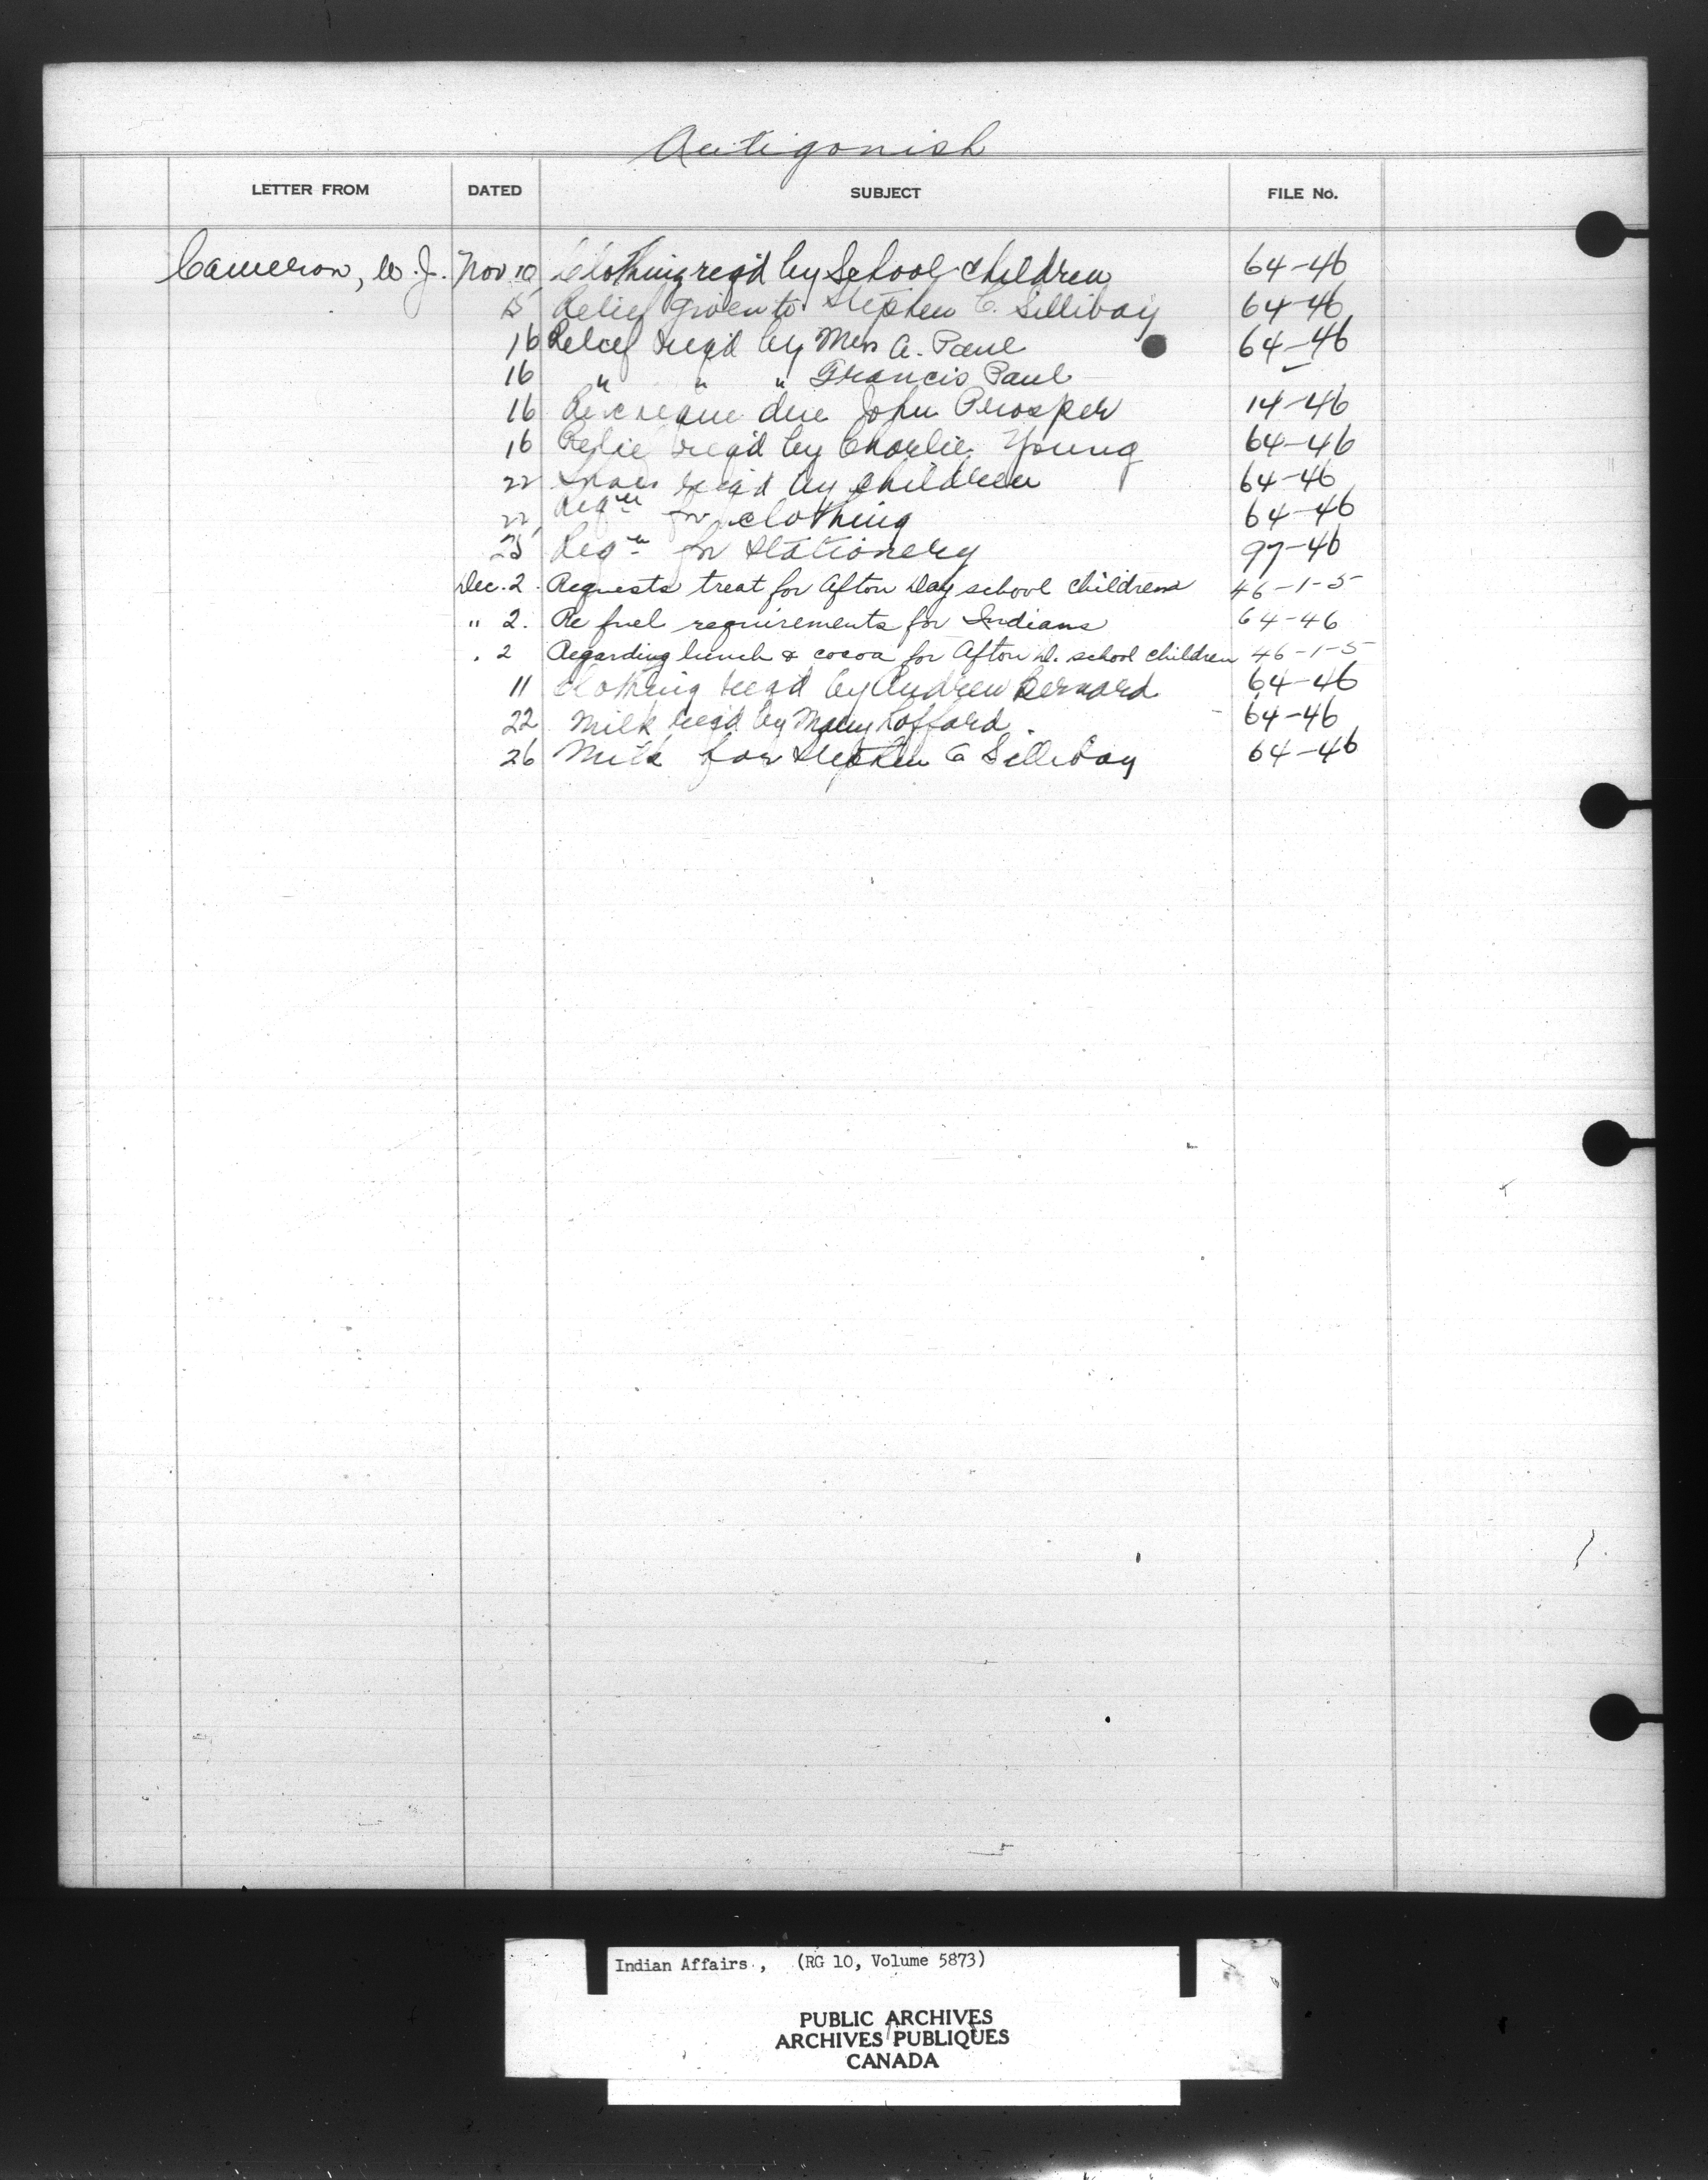 Antigonish
LETTER FROM DATED SUBJECT FILE No.
Cameron, W. J. Nov 10 Clothing req'd by School children 64-46
15 Relief given to Stephen C. Silliboy 64-46
16 Relief req'd by Mrs A. Paul 64-46
16 " " " Francis Paul -
16 Re due John Prosper 14-46
16 Relief req'd by Charlie Young 64-46
22 Shoes req'd by children 64-46
22 Reqn for clothing 64-46
25 Reqn for stationery 97-46
Dec. 2. Requests treat for Afton Day school childrens 46-1-5
" 2. Re fuel requirements for Indians 64-46
. 2 Regarding lunch & cocoa for Afton D. school children 46-1-5
11 Clothing req'd by Andrew Bernard 64-46
22 Milk req'd by Mary Lafford. 64-46
26 Milk for Stephen C Sillibay 64-46
Indian Affairs, (RG 10, Volume 5873)
PUBLIC ARCHIVES
ARCHIVES PUBLIQUES
CANADA